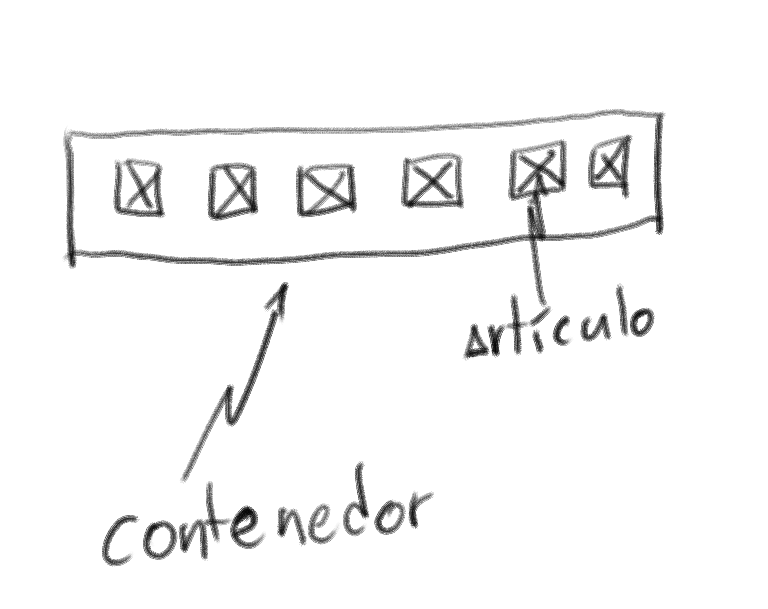 artículo
contenedor